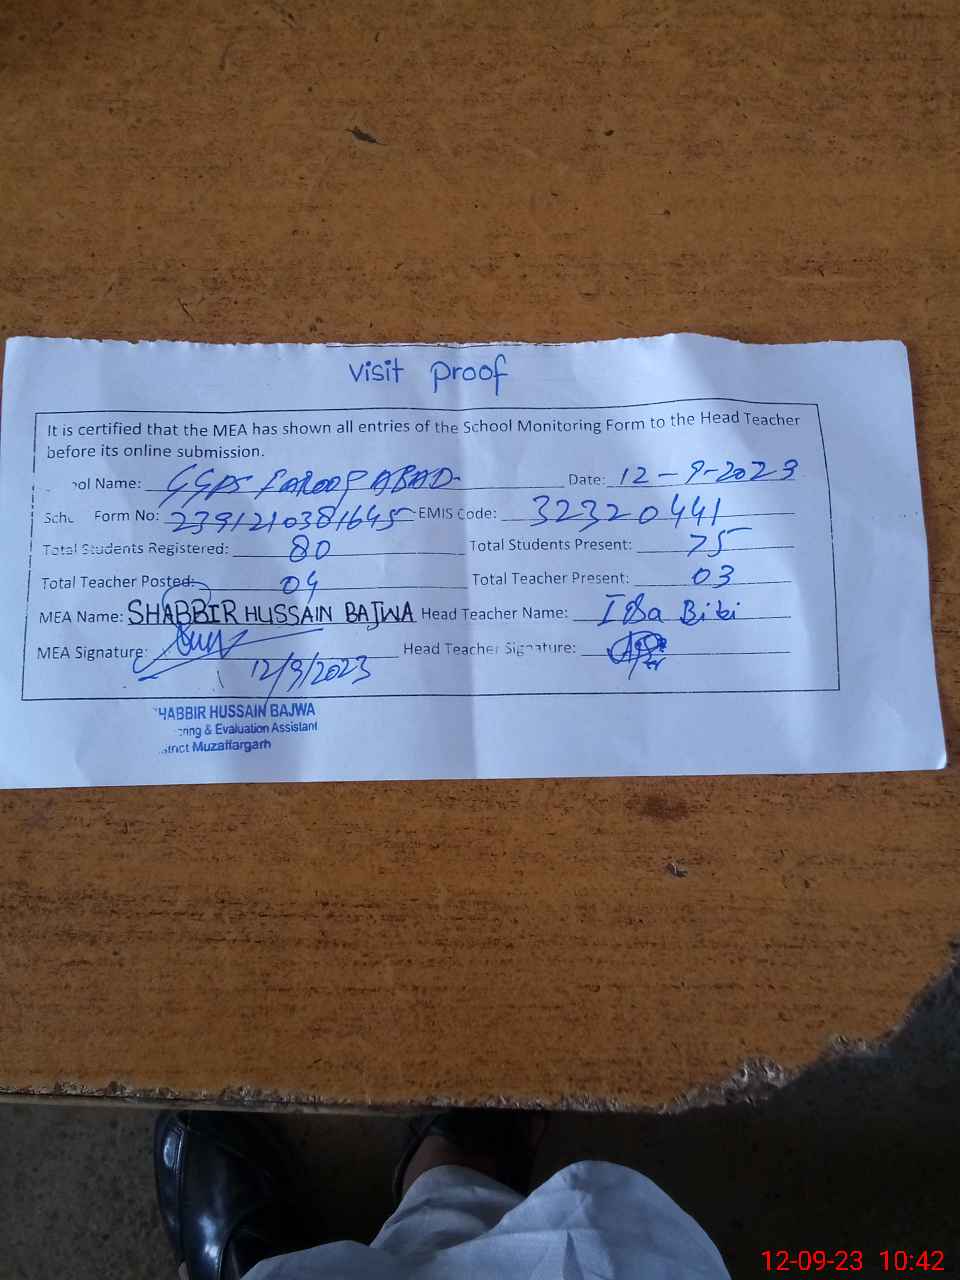 visit proof
It is certified that the MEA has shown all entries of the School Monitoring Form to the Head Teacher
before its online submission.
ol Name: GGPS FAROOQ ABAD Date: 12-9-2023
Form No: 2391210381645 EMIS Code: 32320441
Total Students Registered: 80 Total Students Present: 75
Total Teacher Posted: 04 Total Teacher Present: 03
MEA Name: SHABBIR HUSSAIN BAJWA Head Teacher Name: Bibi
MEA Signature: 12/9/2023 Head Teacher Signature:
HABBIR HUSSAIN BAJWA
ring & Evaluation Assistant
strict Muzaffargarh
12-09-23 10:42